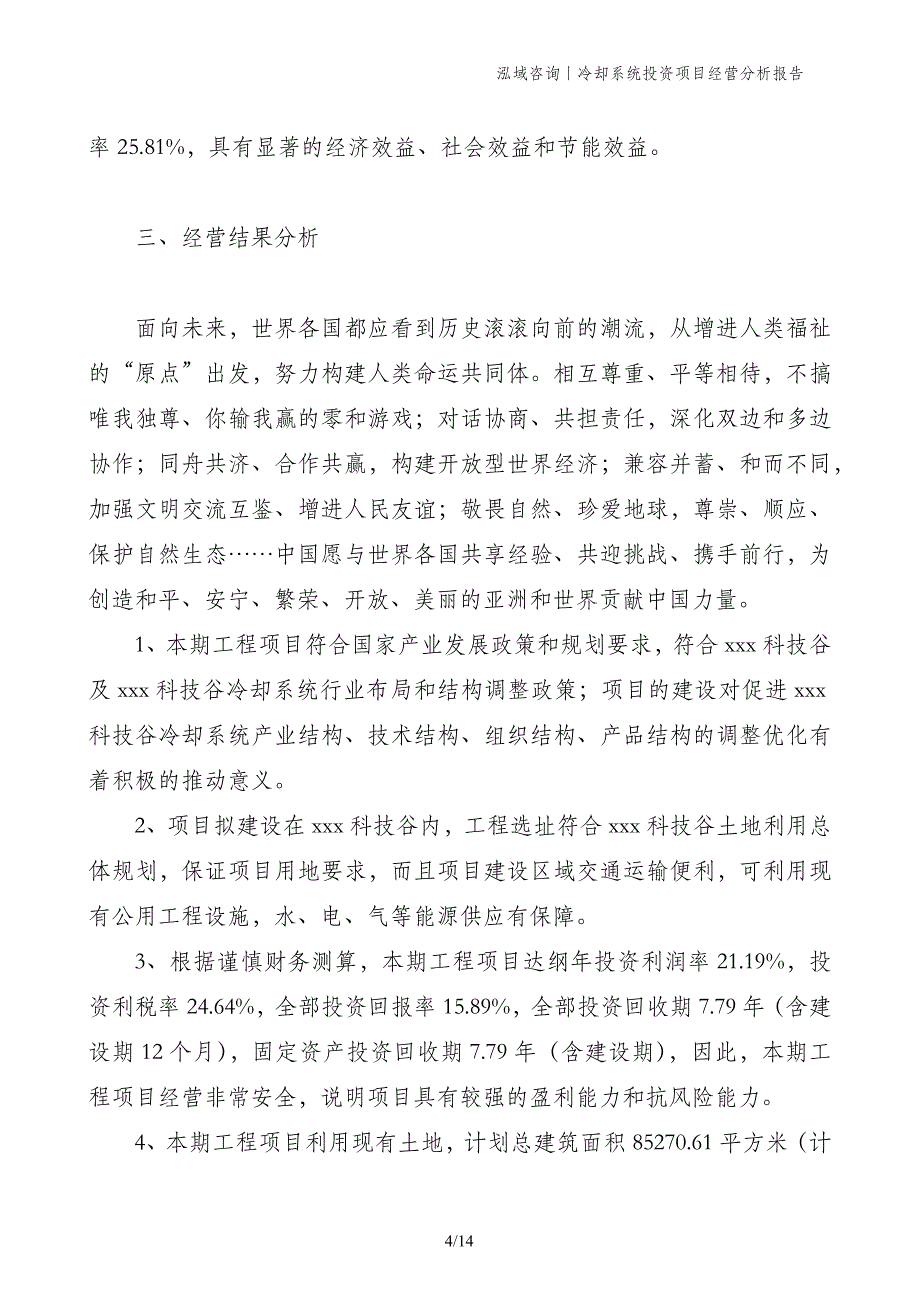 泓域咨询丨冷却系统投资项目经营分析报告
率 25.81%，具有显著的经济效益、社会效益和节能效益。
三、经营结果分析
面向未来，世界各国都应看到历史滚滚向前的潮流，从增进人类福祉
的“原点”出发，努力构建人类命运共同体。相互尊重、平等相待，不搞
唯我独尊、你输我赢的零和游戏；对话协商、共担责任，深化双边和多边
协作；同舟共济、合作共赢，构建开放型世界经济；兼容并蓄、和而不同，
加强文明交流互鉴、增进人民友谊；敬畏自然、珍爱地球，尊崇、顺应、
保护自然生态……中国愿与世界各国共享经验、共迎挑战、携手前行，为
创造和平、安宁、繁荣、开放、美丽的亚洲和世界贡献中国力量。
1、本期工程项目符合国家产业发展政策和规划要求，符合 xxx 科技谷
及 xxx 科技谷冷却系统行业布局和结构调整政策；项目的建设对促进 xxx
科技谷冷却系统产业结构、技术结构、组织结构、产品结构的调整优化有
着积极的推动意义。
2、项目拟建设在 xxx 科技谷内，工程选址符合 xxx 科技谷土地利用总
体规划，保证项目用地要求，而且项目建设区域交通运输便利，可利用现
有公用工程设施，水、电、气等能源供应有保障。
3、根据谨慎财务测算，本期工程项目达纲年投资利润率 21.19%，投
资利税率 24.64%，全部投资回报率 15.89%，全部投资回收期 7.79 年（含建
设期 12 个月），固定资产投资回收期 7.79 年（含建设期），因此，本期工
程项目经营非常安全，说明项目具有较强的盈利能力和抗风险能力。
4、本期工程项目利用现有土地，计划总建筑面积 85270.61 平方米（计
4/14